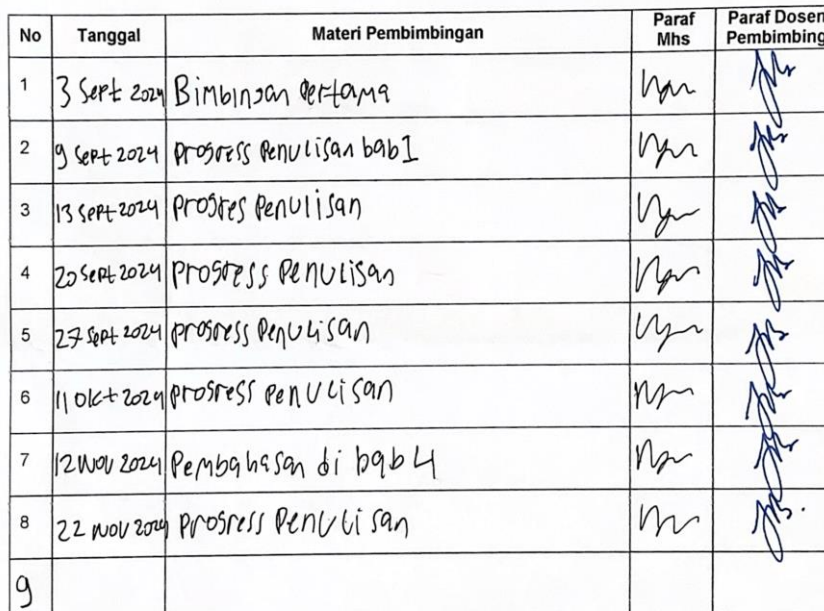 No Tanggal Materi Pembimbingan Paraf Mhs Paraf Dosen Pembimbing
1 3 Sept 2024 Bimbingan pertama
2 9 Sept 2024 Progress Penulisan bab I
3 13 Sept 2024 Progres Penulisan
4 20 Sept 2024 Progress Penulisan
5 27 Sept 2024 Progress Penulisan
6 11 Okt 2024 Progress Penulisan
7 12 Nov 2024 Pembahasan di bab 4
8 22 Nov 2024 Progress Penulisan
9